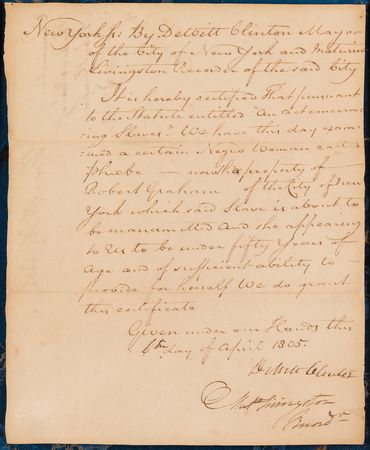 New York ss: By DeWitt Clinton Mayor
of the City of New York and Maturin
Livingston Recorder of the said City
It is hereby certified That pursuant
to the Statute entitled "An act concern-
ing Slaves." We have this day exam-
ined a certain Negro Woman called
Phebe — now the property of —
Robert Graham of the City of New
York which said Slave is about to
be manumitted and she appearing
to Us to be under fifty Years of
Age and of sufficient ability to —
provide for herself We do grant
this certificate
Given under our Hands this
6th day of April 1805.
DeWitt Clinton
Mat Livingston
Record r